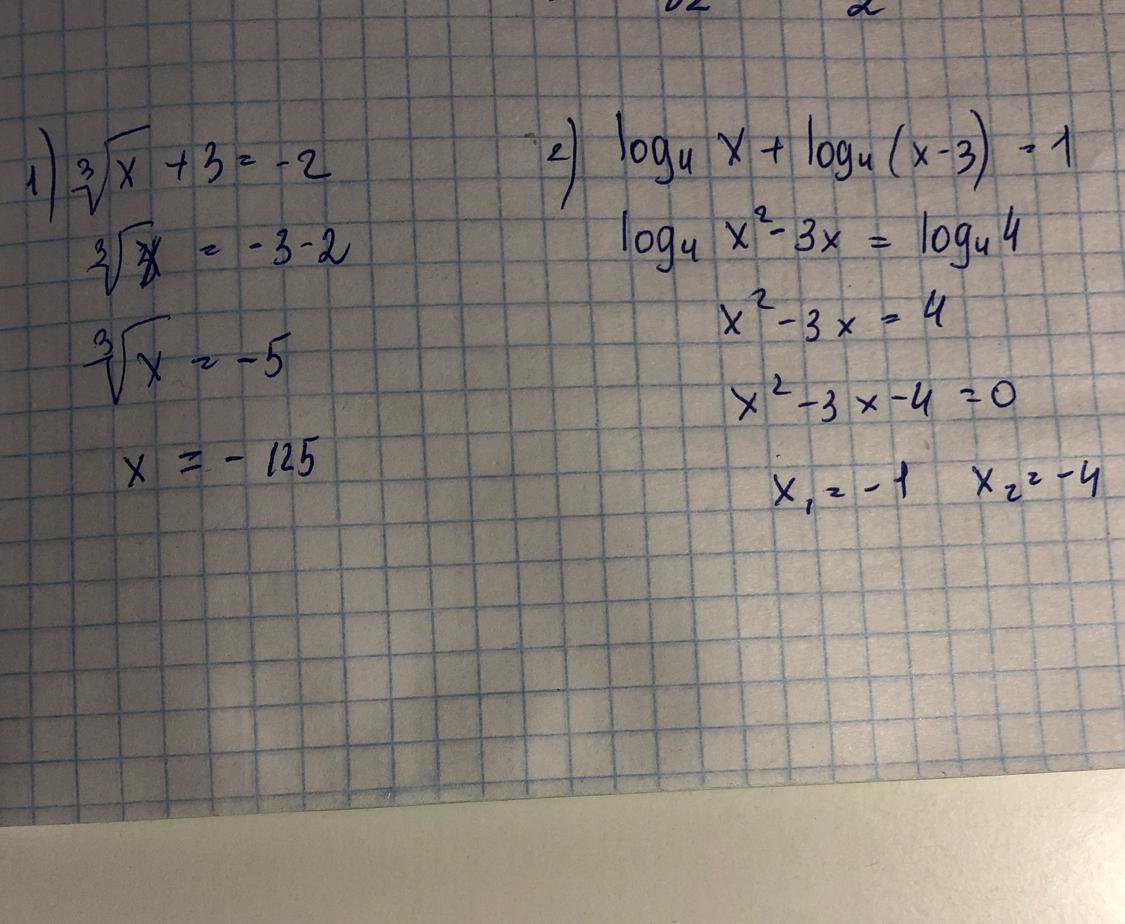 1) ∛x + 3 = -2
∛x = -3-2
∛x = -5
x = - 125
2) log₄ x + log₄ (x-3) = 1
log₄ x² - 3x = log₄ 4
x² - 3x = 4
x² - 3x - 4 = 0
x₁ = -1 x₂ = -4